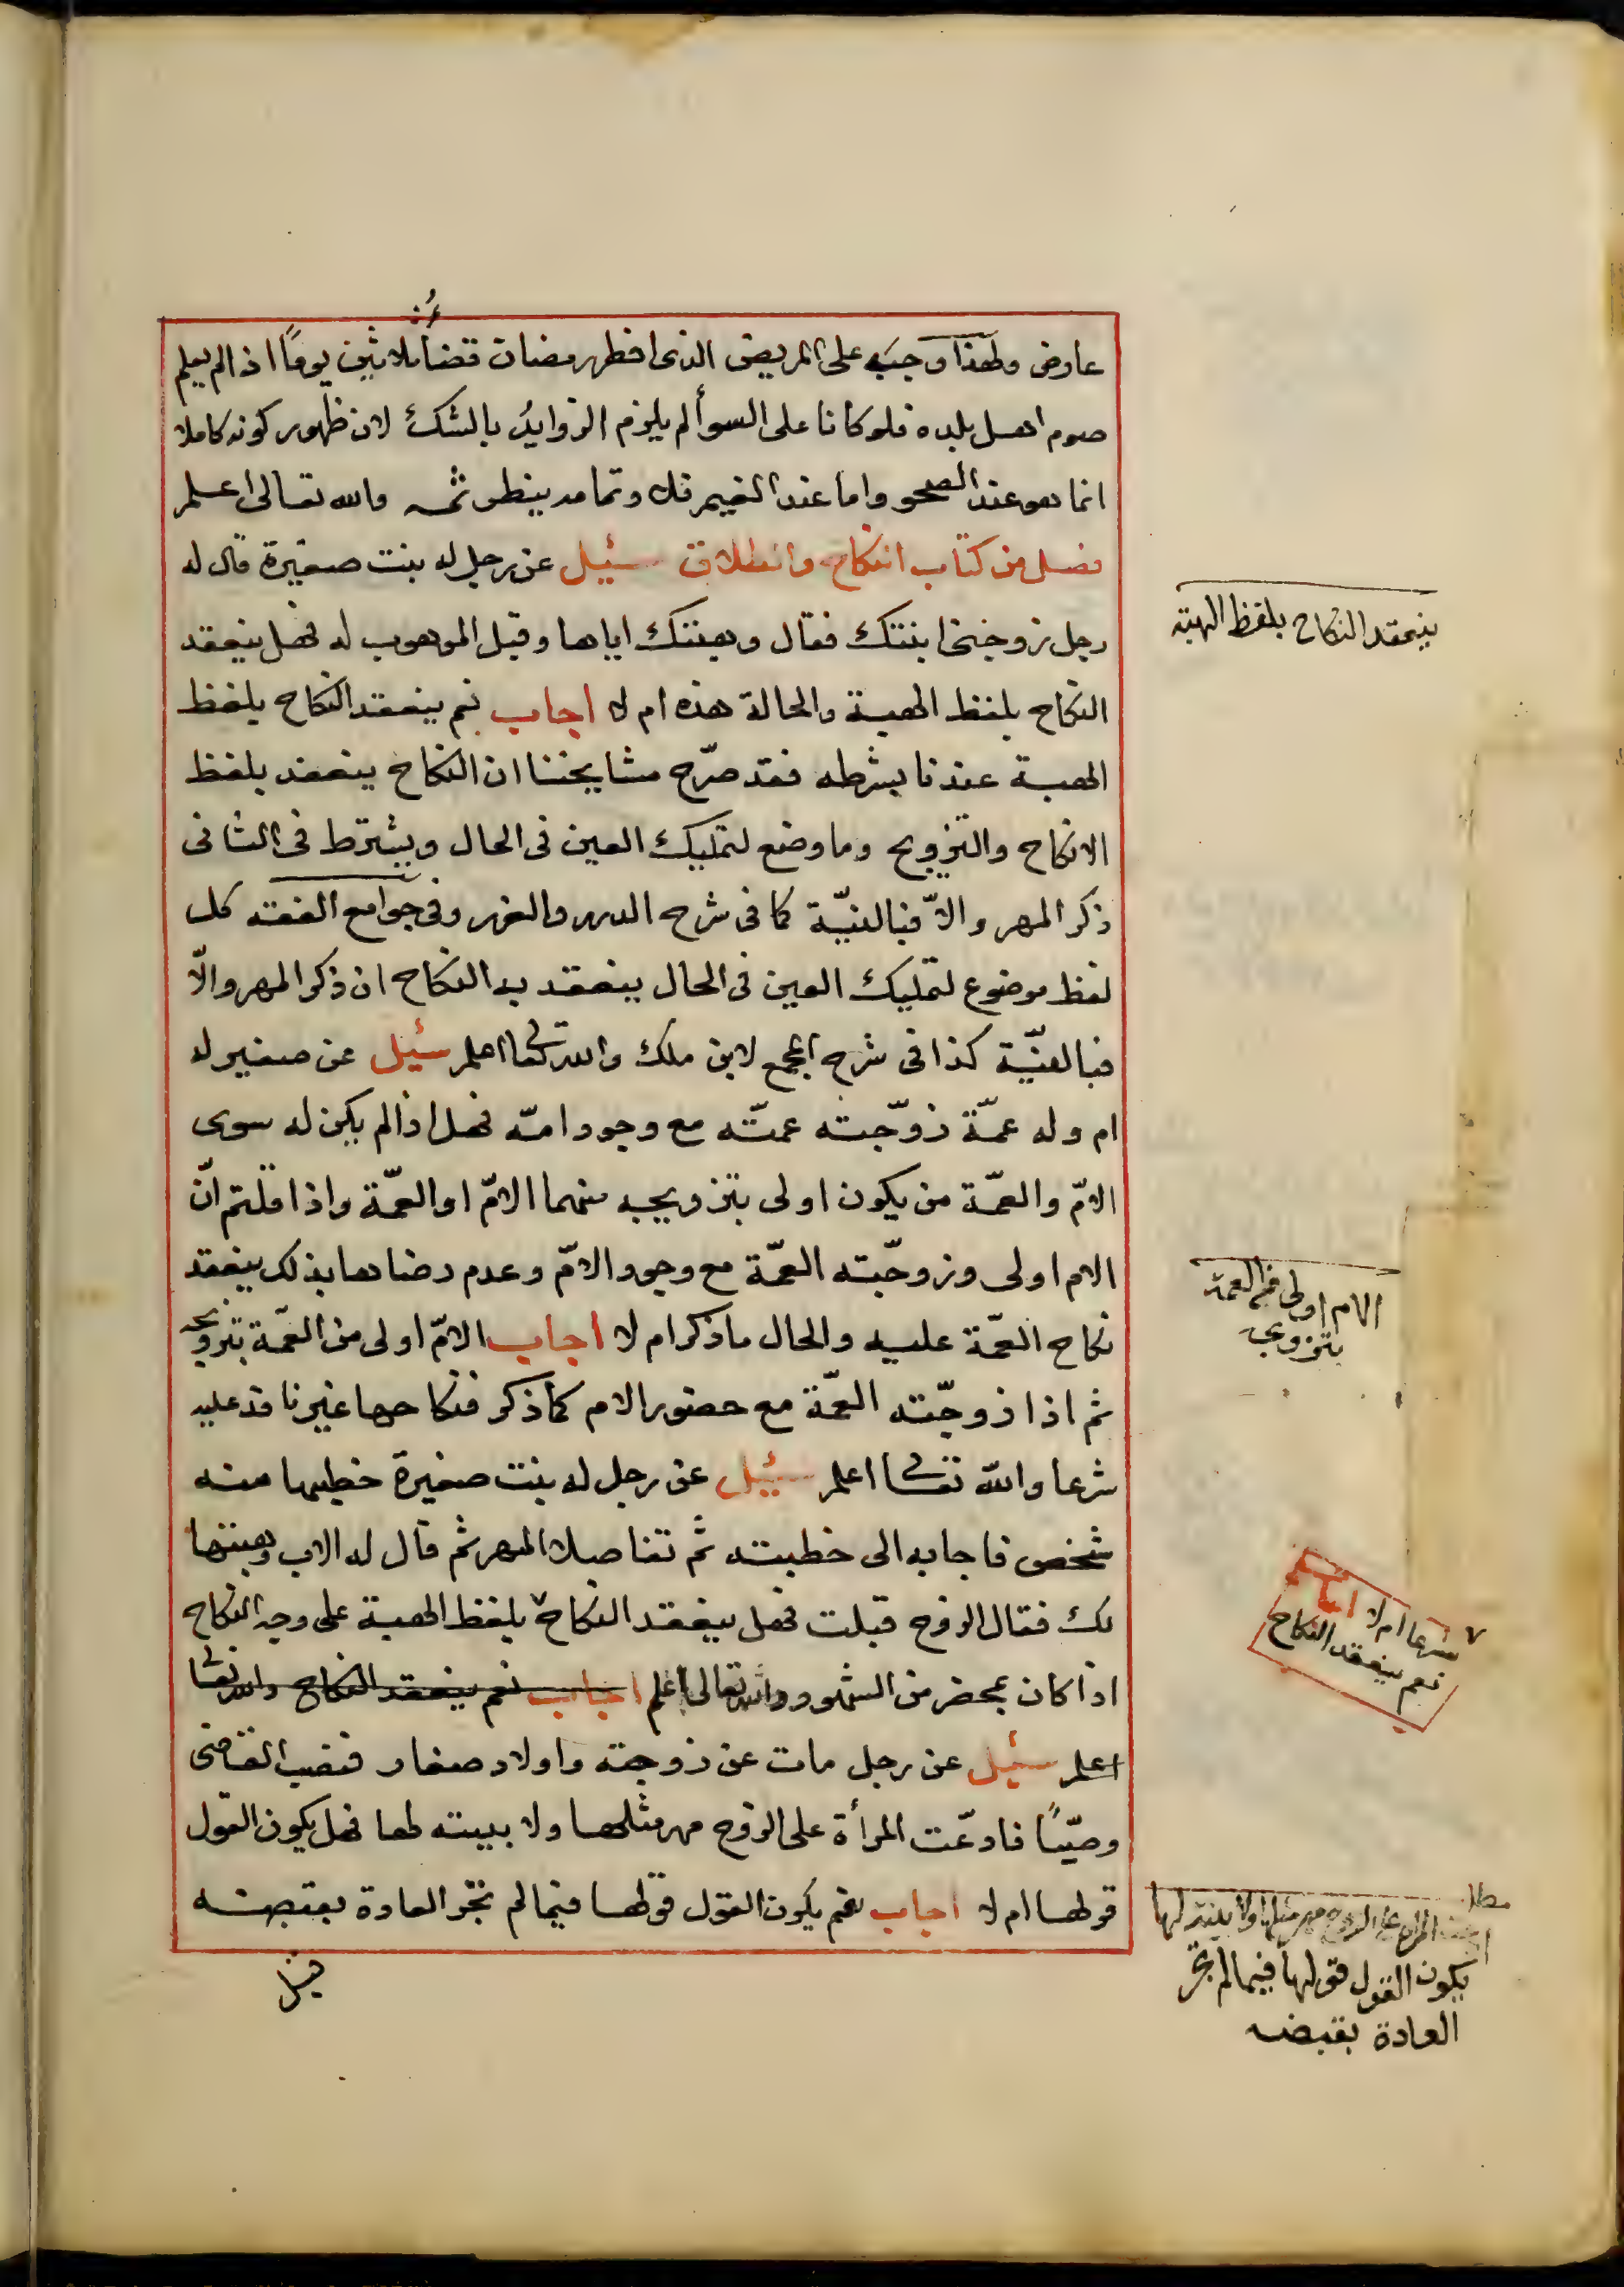 عارض ولهذا وجب على المريض الذى افطر رمضان قضأ ثلاثين يومًا اذا لم يعلم
صوم اهل بلده فلو كانا على السوأ لم يلزم الزوايد بالشك لان ظهور كونه كاملا
انما هو عند الصحو واما عند الغيم فلا وتمامه ينظر ثمه والله تعالى اعلم
فصل من كتاب النكاح والطلاق سئيل عن رجل له بنت صغيرة قال له
رجل زوجنى ابنتك فقال وهبتك اياها وقبل الموهوب له فهل ينعقد
النكاح بلفظ الهبة والحالة هذه ام لا اجاب نعم ينعقد النكاح بلفظ
الهبة عندنا بشرطه فقد صرّح مشايخنا ان النكاح ينعقد بلفظ
الانكاح والتزويج وما وضع لتمليك العين فى الحال ويشترط فى الثانى
ذكر المهر والاّ فبالنيّة كما فى شرح الدرر والغرر وفى جوامع الفقه كل
لفظ موضوع لتمليك العين فى الحال ينعقد به النكاح ان ذكر المهر والاّ
فبالنيّة كذا فى شرح المجمع لابن ملك والله تعا اعلم سئيل عن صغير له
ام وله عمّة زوّجته عمّته مع وجود امّه فهل اذا لم يكن له سوى
الامّ والعمّة من يكون اولى بتزويجه منهما الامّ او العمّة واذا قلتم انّ
الام اولى وزوّجته العمّة مع وجود الامّ وعدم رضاها بذلك ينعقد
نكاح العمّة عليه والحال ما ذكر ام لا اجاب الامّ اولى من العمّة بتزويجه
ثم اذا زوجّته العمّة مع حضور الام كما ذكر فنكاحها غير نافذ عليه
شرعا والله تعا اعلم سئيل عن رجل له بنت صغيرة خطبها منه
شخص فاجابه الى خطبته ثم تفاصلا المهر ثم قال له الاب وهبتها
لك فقال الزوج قبلت فهل ينعقد النكاح بلفظ الهبة على وجه النكاح
اذا كان بمحضر من الشهود والله تعالى اعلم اجاب نعم ينعقد النكاح والله تعا
اعلم سئيل عن رجل مات عن زوجة واولاد صغار فنصب القاضى
وصيًّا فادعّت المرأة على الزوج مهر مثلها ولا بينة لها فهل يكون القول
قولها ام لا اجاب نعم يكون القول قولها فيما لم تجر العادة بقبضه
قبل
ينعقد النكاح بلفظ الهبة
الام اولى من العمّة
بتزويجه
شرعا ام لا اجاب
نعم ينعقد النكاح
مطلب
المرأة على الزوج مهر مثلها ولا بينة لها
يكون القول قولها فيما لم تجر
العادة بقبضه